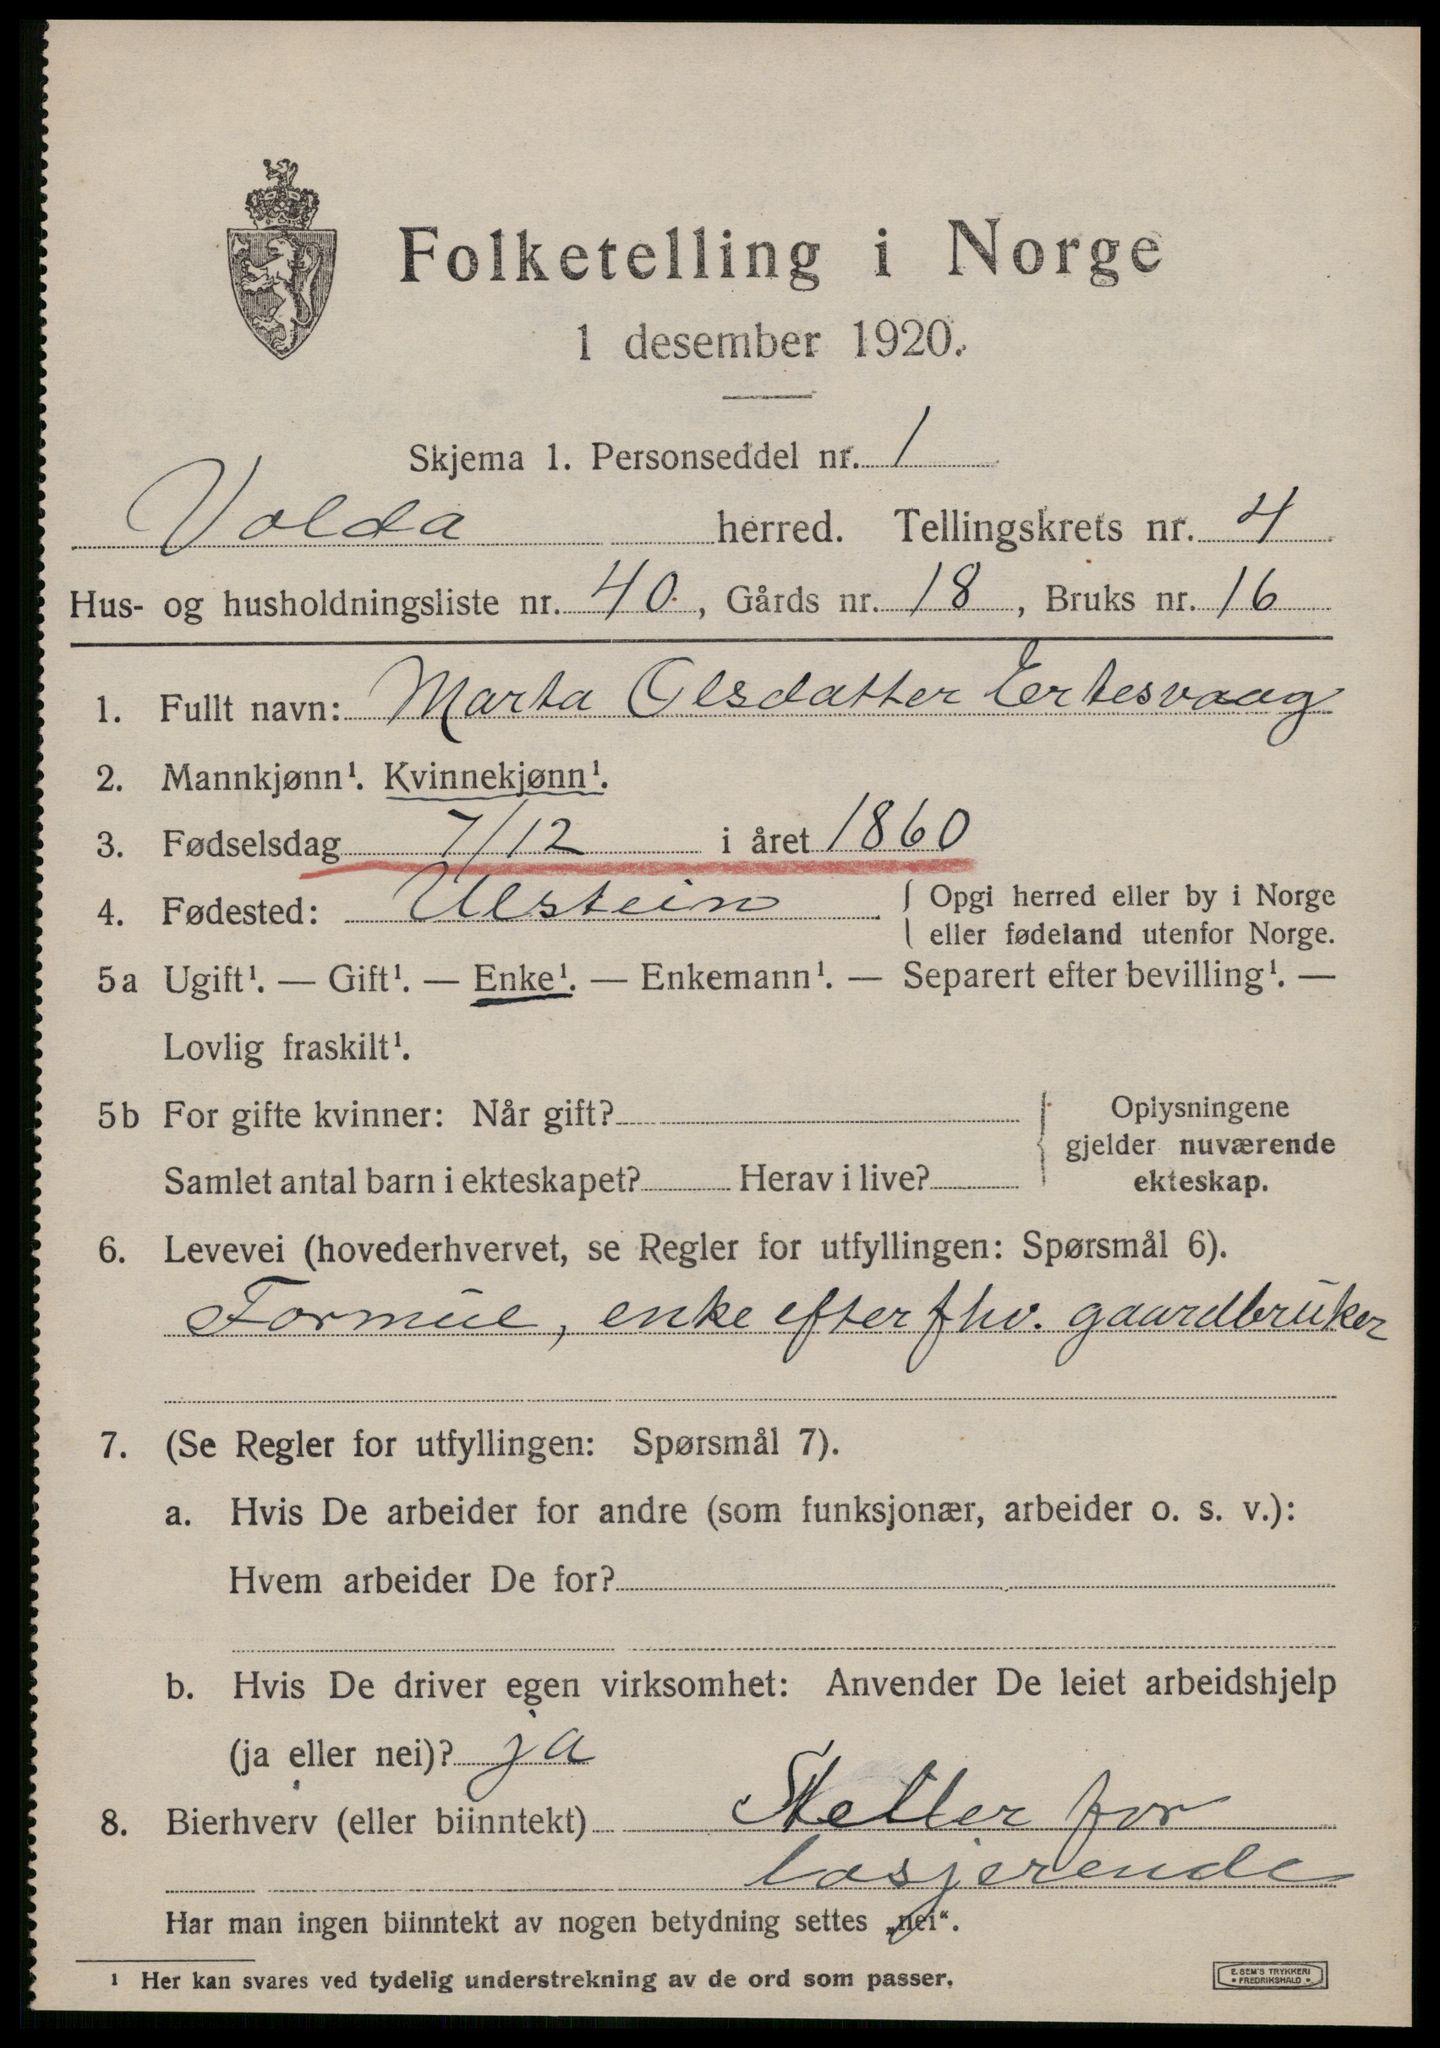 Folketelling i Norge
1 desember 1920.
Skjema 1. Personseddel nr. 1
Volda herred. Tellingskrets nr. 4
Hus- og husholdningsliste nr. 40, Gårds nr. 18, Bruks nr. 16
1. Fullt navn: Marta Olsdatter Ertesvaag
2. Mannkjønn¹. Kvinnekjønn¹.
3. Fødselsdag 7/12 i året 1860
4. Fødested: Ulstein { Opgi herred eller by i Norge
eller fødeland utenfor Norge.
5a Ugift¹. — Gift¹. — Enke¹. — Enkemann¹. — Separert efter bevilling¹. —
Lovlig fraskilt¹.
5b For gifte kvinner: Når gift? { Oplysningene
gjelder nuværende
Samlet antal barn i ekteskapet? Herav i live? ekteskap.
6. Levevei (hovederhvervet, se Regler for utfyllingen: Spørsmål 6).
Formue, enke efter fhv. gaardbruker
7. (Se Regler for utfyllingen: Spørsmål 7).
a. Hvis De arbeider for andre (som funksjonær, arbeider o. s. v.):
Hvem arbeider De for?
b. Hvis De driver egen virksomhet: Anvender De leiet arbeidshjelp
(ja eller nei)? ja
8. Bierhverv (eller biinntekt) Steller for
losjerende
Har man ingen biinntekt av nogen betydning settes „nei“.
¹ Her kan svares ved tydelig understrekning av de ord som passer.
E. SEM'S TRYKKERI
• FREDRIKSHALD •